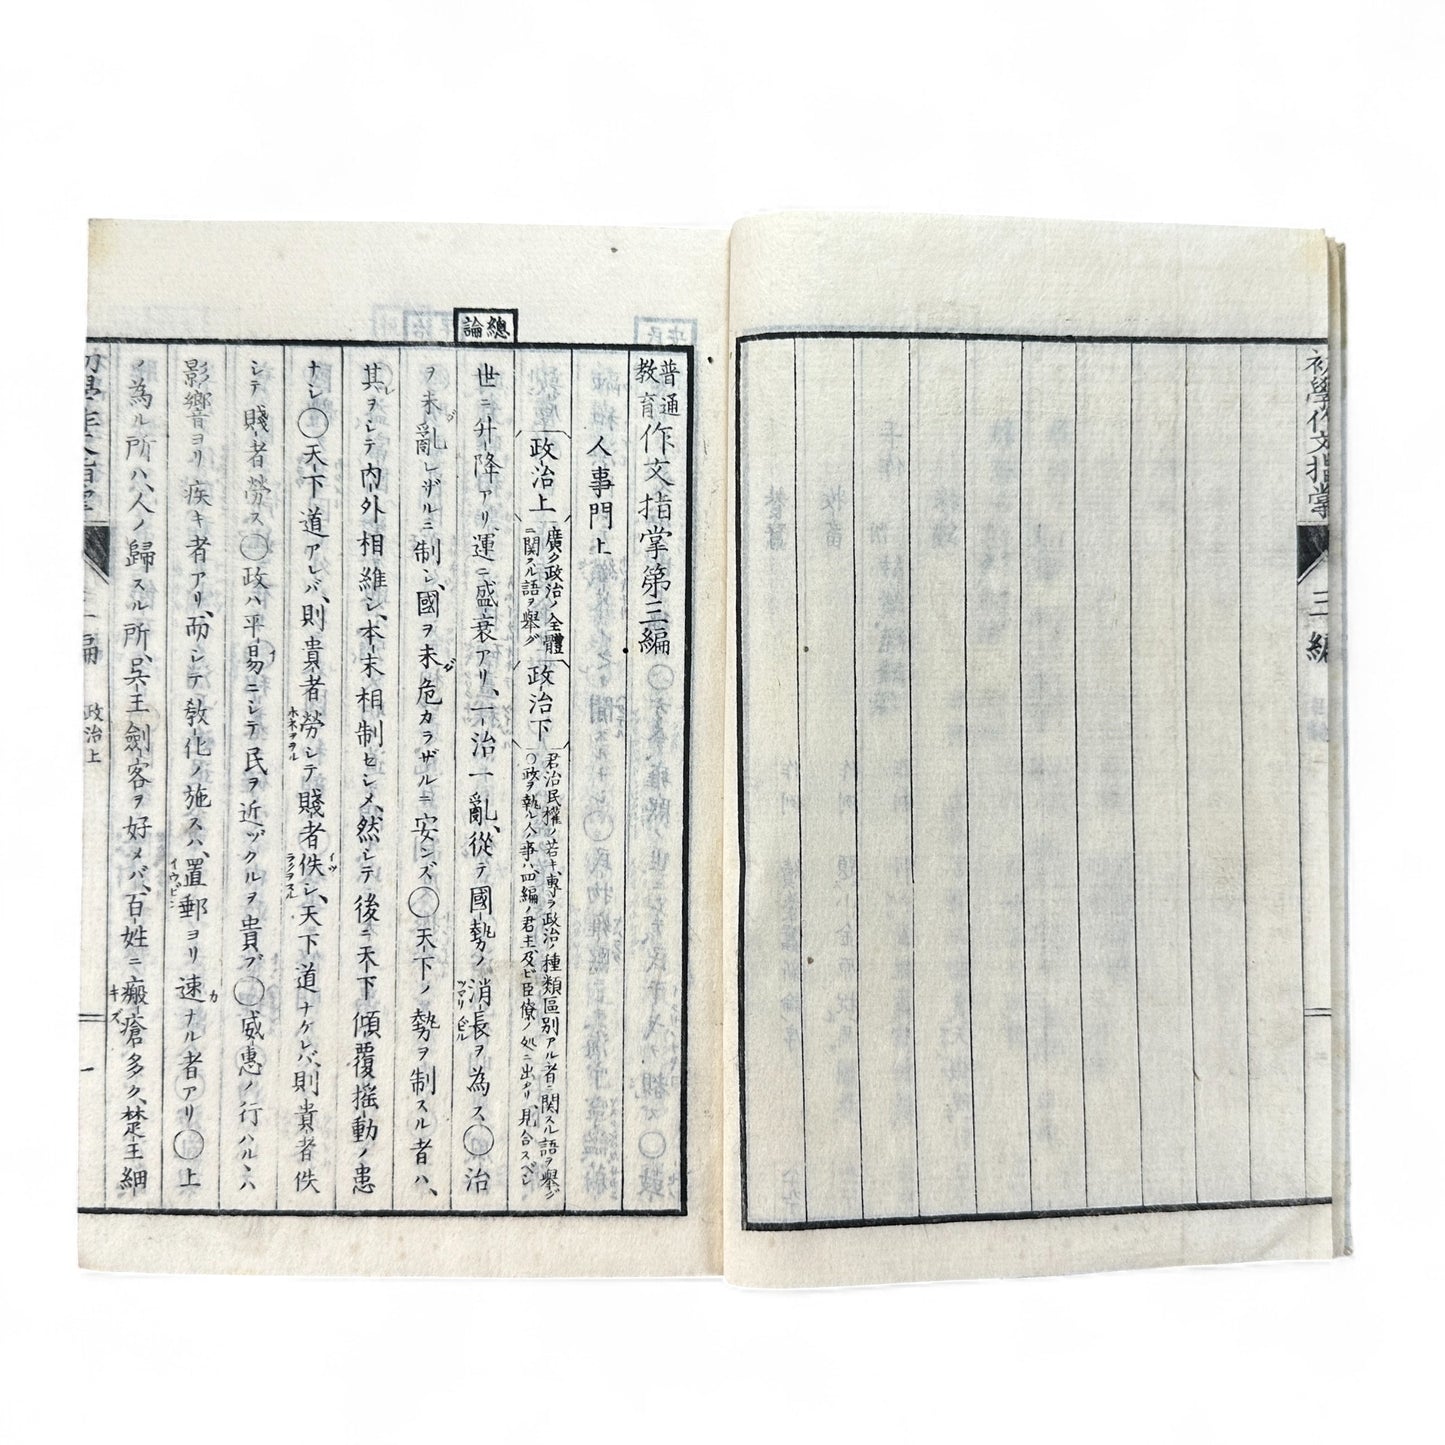 初學作文指掌
三編
總論
普通教育作文指掌第三編
人事門上
政治上 廣ク政治ノ全體ニ関スル語ヲ舉グ 政治下 君治民權ノ若キ、專ラ政治ノ種類區別アル者ニ関スル語ヲ舉グ〇政ヲ執ル人ノ事ハ、四編ノ君主及ビ臣僚ノ処ニ出タリ、見合スベシ
世ニ升降アリ、運ニ盛衰アリ、一治一亂、從テ國勢ノ消長ヲ為ス、〇治
ヲ未ダ亂レザルニ制シ、國ヲ未ダ危カラザルニ安ンズ、〇天下ノ勢ヲ制スル者ハ、
其レヲシテ内外相維シ、本末相制セシメ、然シテ後ニ天下傾覆搖動ノ患
ナシ〇天下道アレバ、則貴者勞シテ賤者佚シ、天下道ナケレバ、則貴者佚
シテ賤者勞ス〇政ハ平易ニシテ民ヲ近ヅクルヲ貴ブ〇威惠ノ行ハルヽハ
影響ヨリ疾キ者アリ、而シテ敎化ノ施スハ、置郵ヨリ速カナル者アリ〇上
ノ為ル所ハ、人ノ歸スル所、呉王劍客ヲ好メバ、百姓ニ瘢瘡多ク、楚王細
初學作文指掌
三編
政治上
一